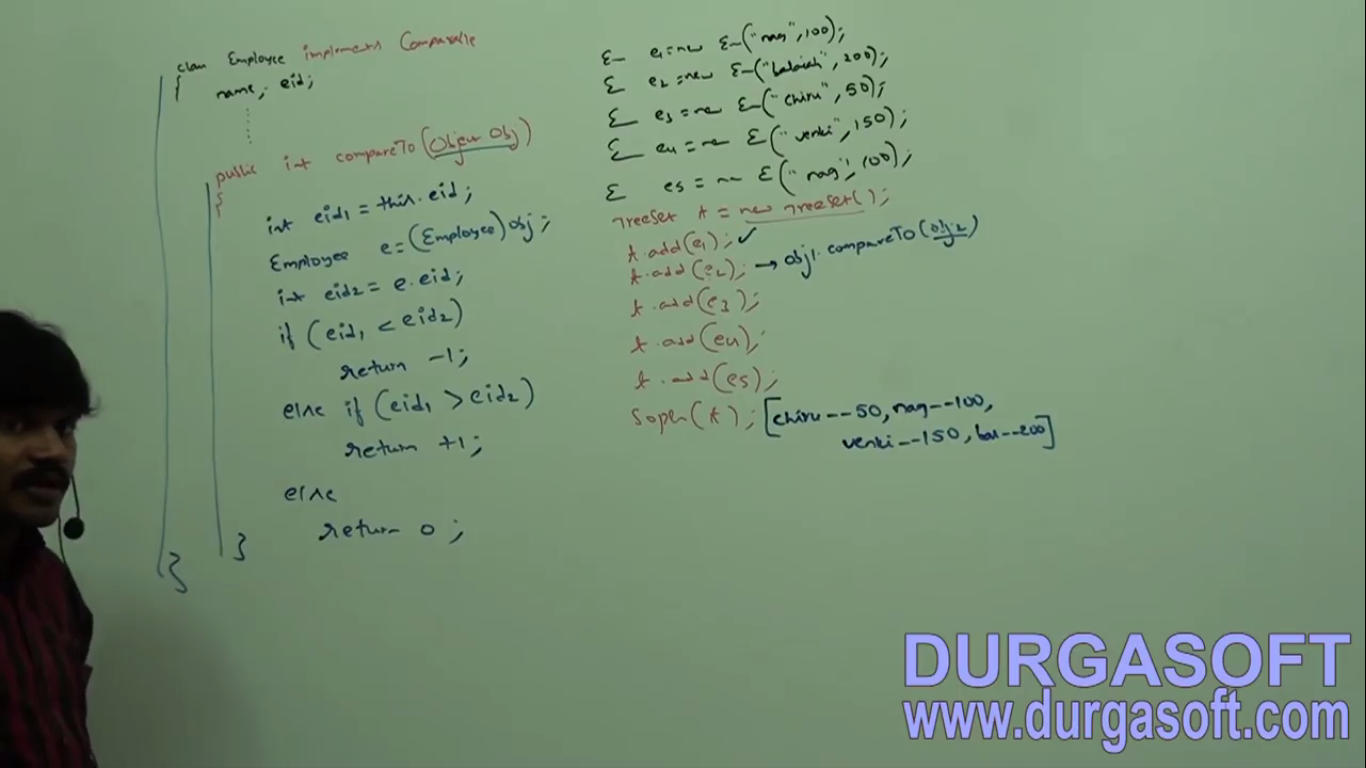 class Employee implements Comparable
{
name, eid;
public int compareTo(Object obj)
{
int eid1 = this.eid;
Employee e=(Employee)obj;
int eid2 = e.eid;
if (eid1 < eid2)
return -1;
else if (eid1 > eid2)
return +1;
else
return 0;
}
}
E e1=new E("nag",100);
E e2=new E("balaiah",200);
E e3=new E("chiru",50);
E e4=new E("venki",150);
E e5=new E("nag",100);
TreeSet t = new TreeSet();
t.add(e1); ✓
t.add(e2); → obj1.compareTo(obj2)
t.add(e3);
t.add(e4);
t.add(e5);
Sopln(t); [chiru--50, nag--100,
venki--150, bal--200]
DURGASOFT
www.durgasoft.com